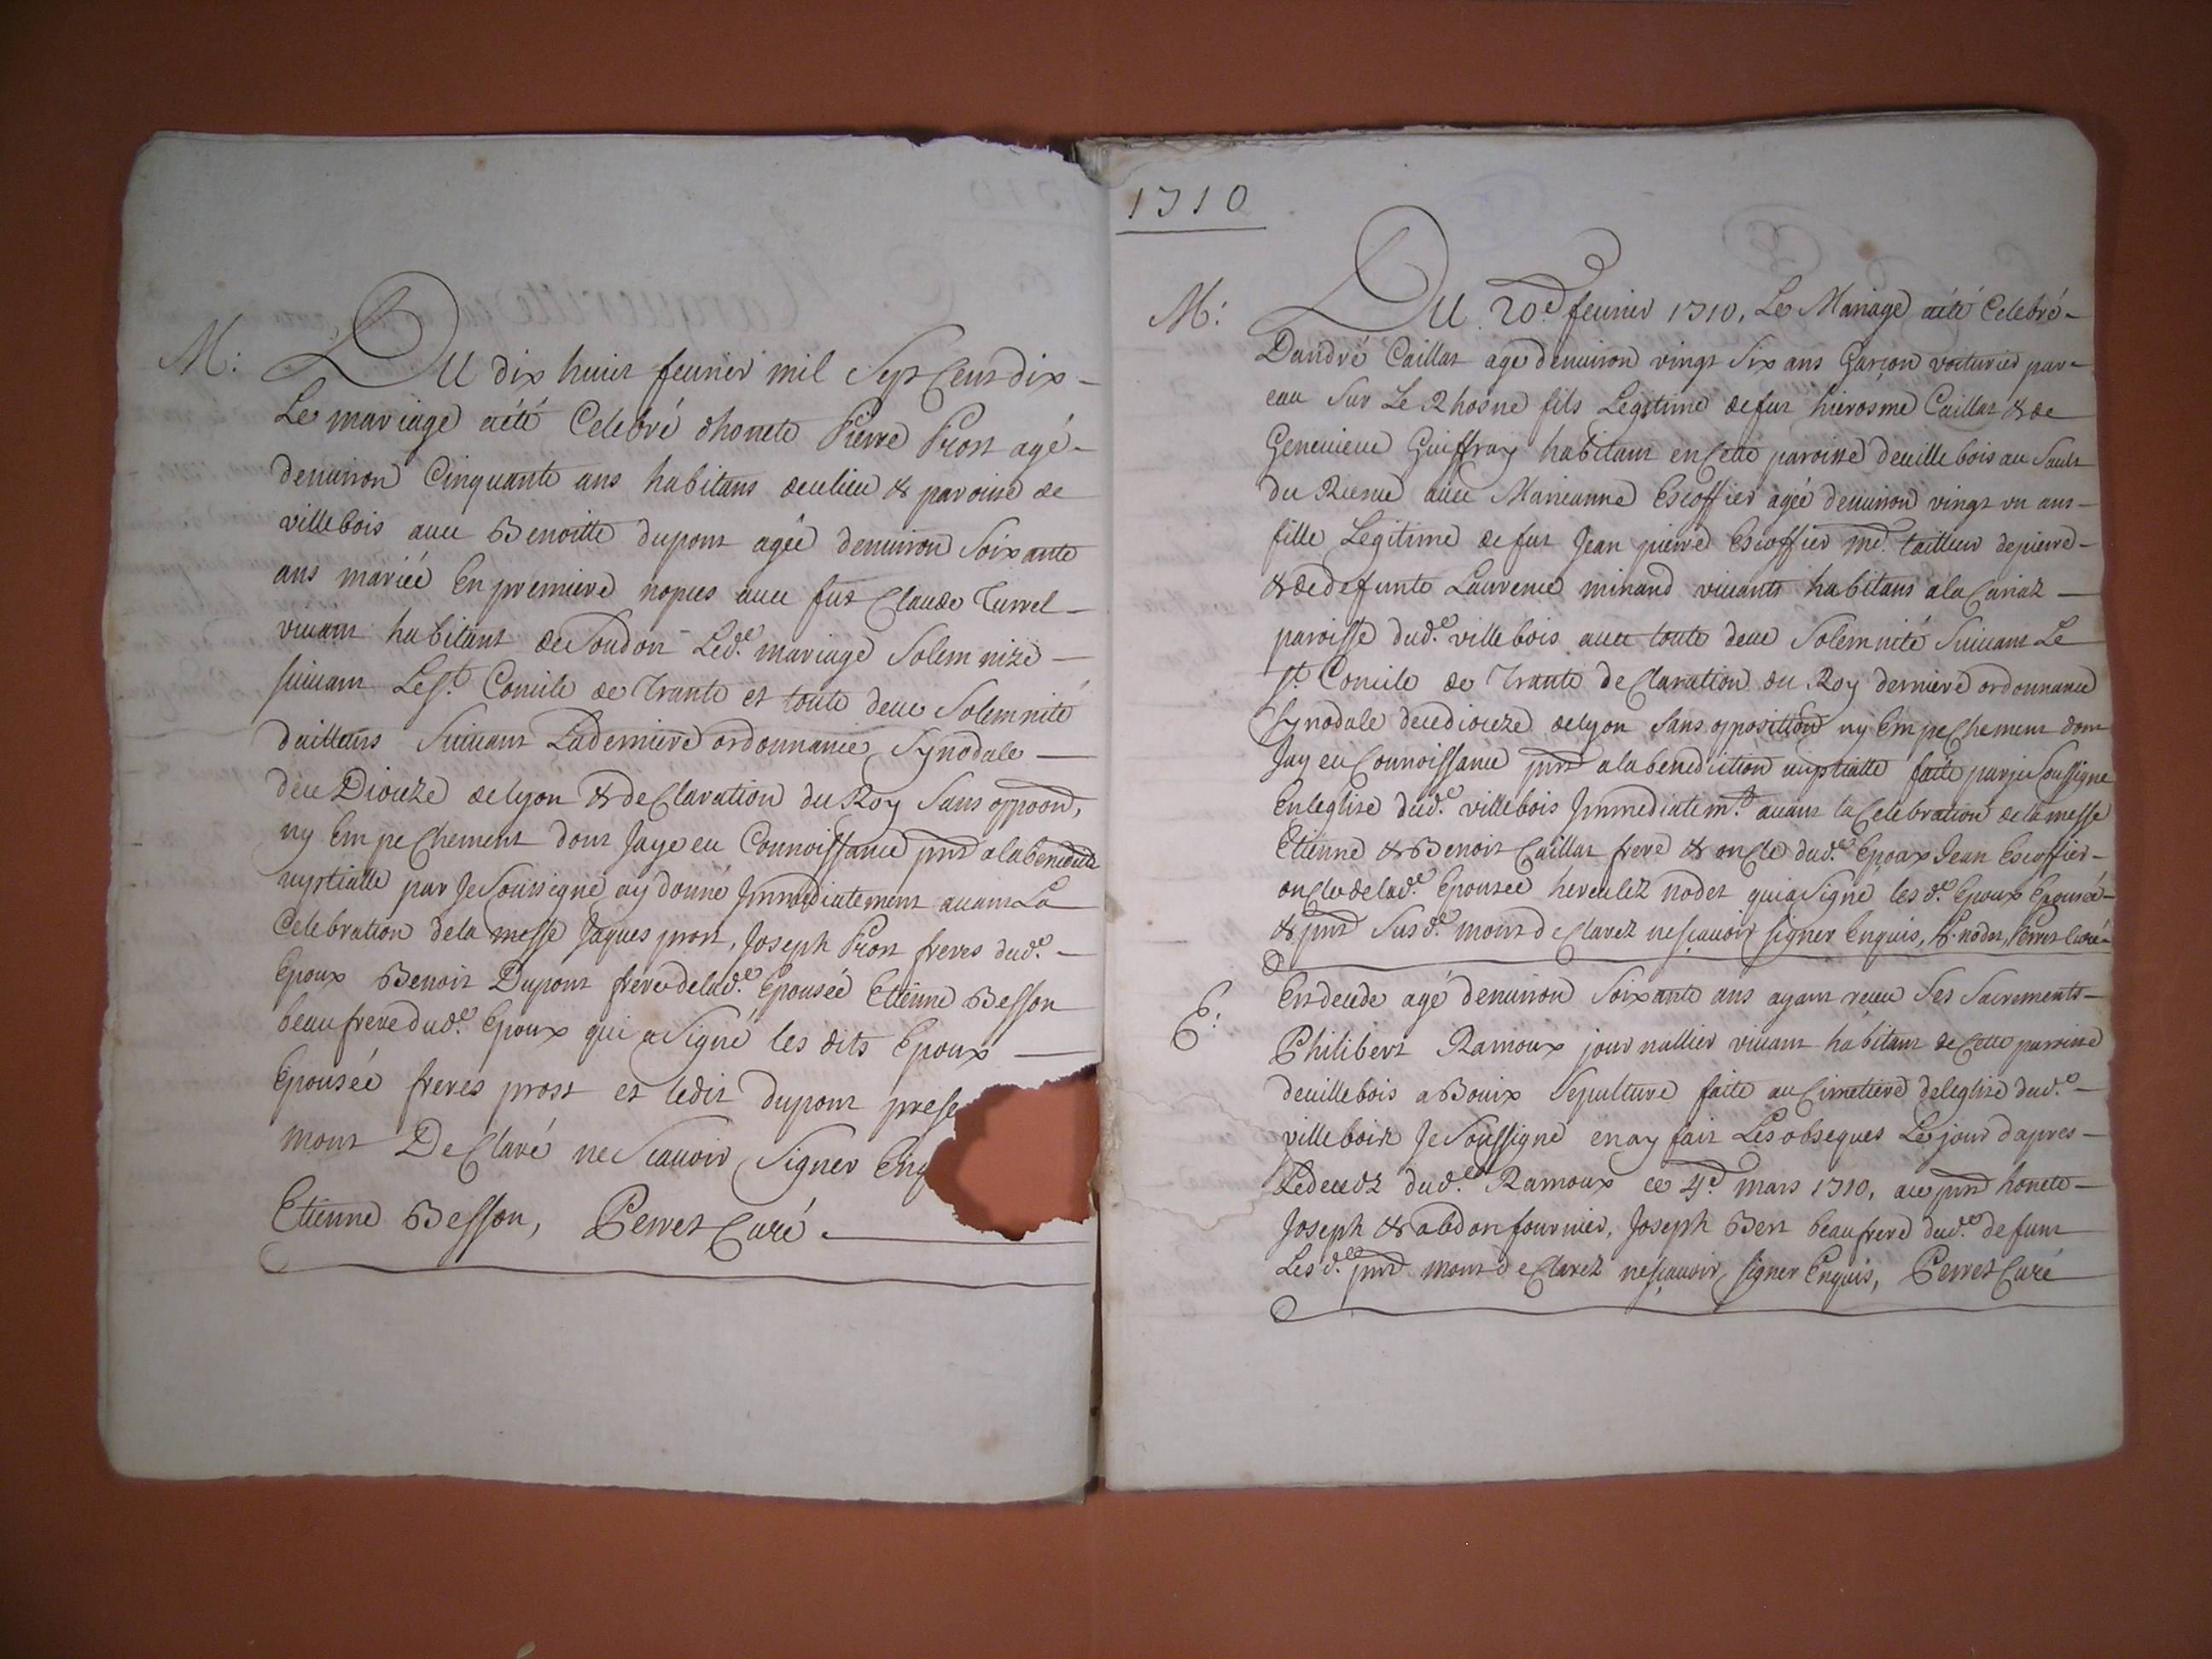 M:
Du dix huict feurier mil Sept Cent dix -
Le mariage aété Celebré dhonete Pierre Prost agé -
denuiron Cinquante ans habitans deulieu & paroisse de
villebois auec Benoitte dupont agée denuiron Soixante
ans mariée En premiere nopces auec fut Claude Turrel -
viuant habitant de Soudon Led.e mariage Solemnizé -
suiuant Le St. Concile de Trante et toute deue Solemnité
dailleurs Suiuant Laderniere ordonnance Synodale -
dece Diouze delyon & deClaration du Roy Sans oppoon,
ny EmpeChement dont Jaye eu Connoissance pnt alabenedict
nuptialle par Je Soussigné ay donné Jmmediatement auant La
Celebration dela messe Jaques prost, Joseph Prost freres dud.e -
Epoux Benoit Dupont frere delad.e Epousée Etienne Besson
beaufrere dud.e Epoux qui a Signé les dits Epoux -
Epousée freres prost et ledit dupont prese
mont DeClaré ne Scauoir Signer Enq
Etienne Besson, Perret Curé -
1710
M:
Du 20e feurier 1710, Le Mariage aété Celebré -
Dandré Caillat agé denuiron vingt Six ans Garçon voiturier par -
eau Sur Le Rhosne fils Legitime defut hierosme Caillat & de
Geneuieue Guiffray habitant en Cette paroisse deuillebois au Sault
du Rhosne auec Marieanne Escoffier agée denuiron vingt vn ans -
fille Legitime defut Jean pierre Escoffier me. tailleur depierre -
& dedefunte Laurence minand viuants habitans ala Cariaz -
paroisse dud.e villebois auec toute deue Solemnité Suiuant Le
St. Concile de Trante deClaration du Roy derniere ordonnance
Synodale decediouze delyon Sans opposition ny EmpeChement dont
Jay eu Connoissance pnt alabenediction nuptialle faite par je Soussigne
Enleglise dud.e villebois Jmmediatemt. auant la Celebration de la messe
Etienne & Benoit Caillat frere & onCle dud.e Epoux Jean Escoffier -
onCle delad.e Epousée herculez nodet qui a Signé les d.e Epoux Epousée -
& pnt Susd.e mont deClarez nesçauoir signer Enquis, H. nodet, Perret Curé -
E:
Est decede agé denuiron Soixante ans ayant receu Ses Sacrements -
Philibert Ramoux journallier viuant habitant de Cette paroisse
deuillebois a Bouix Sepulture faite au Cimetiere deleglise dud.e -
villebois Je Soussigné en ay fait Les obseques Le jour dapres -
Ledecedz dud.e Ramoux ce 4e. mars 1710, ace pnt honete -
Joseph & abdon fournier, Joseph Bert beaufrere dud.e defunt
Lesd.es pnt mont deClarez nesçauoir signer Enquis, Perret Curé